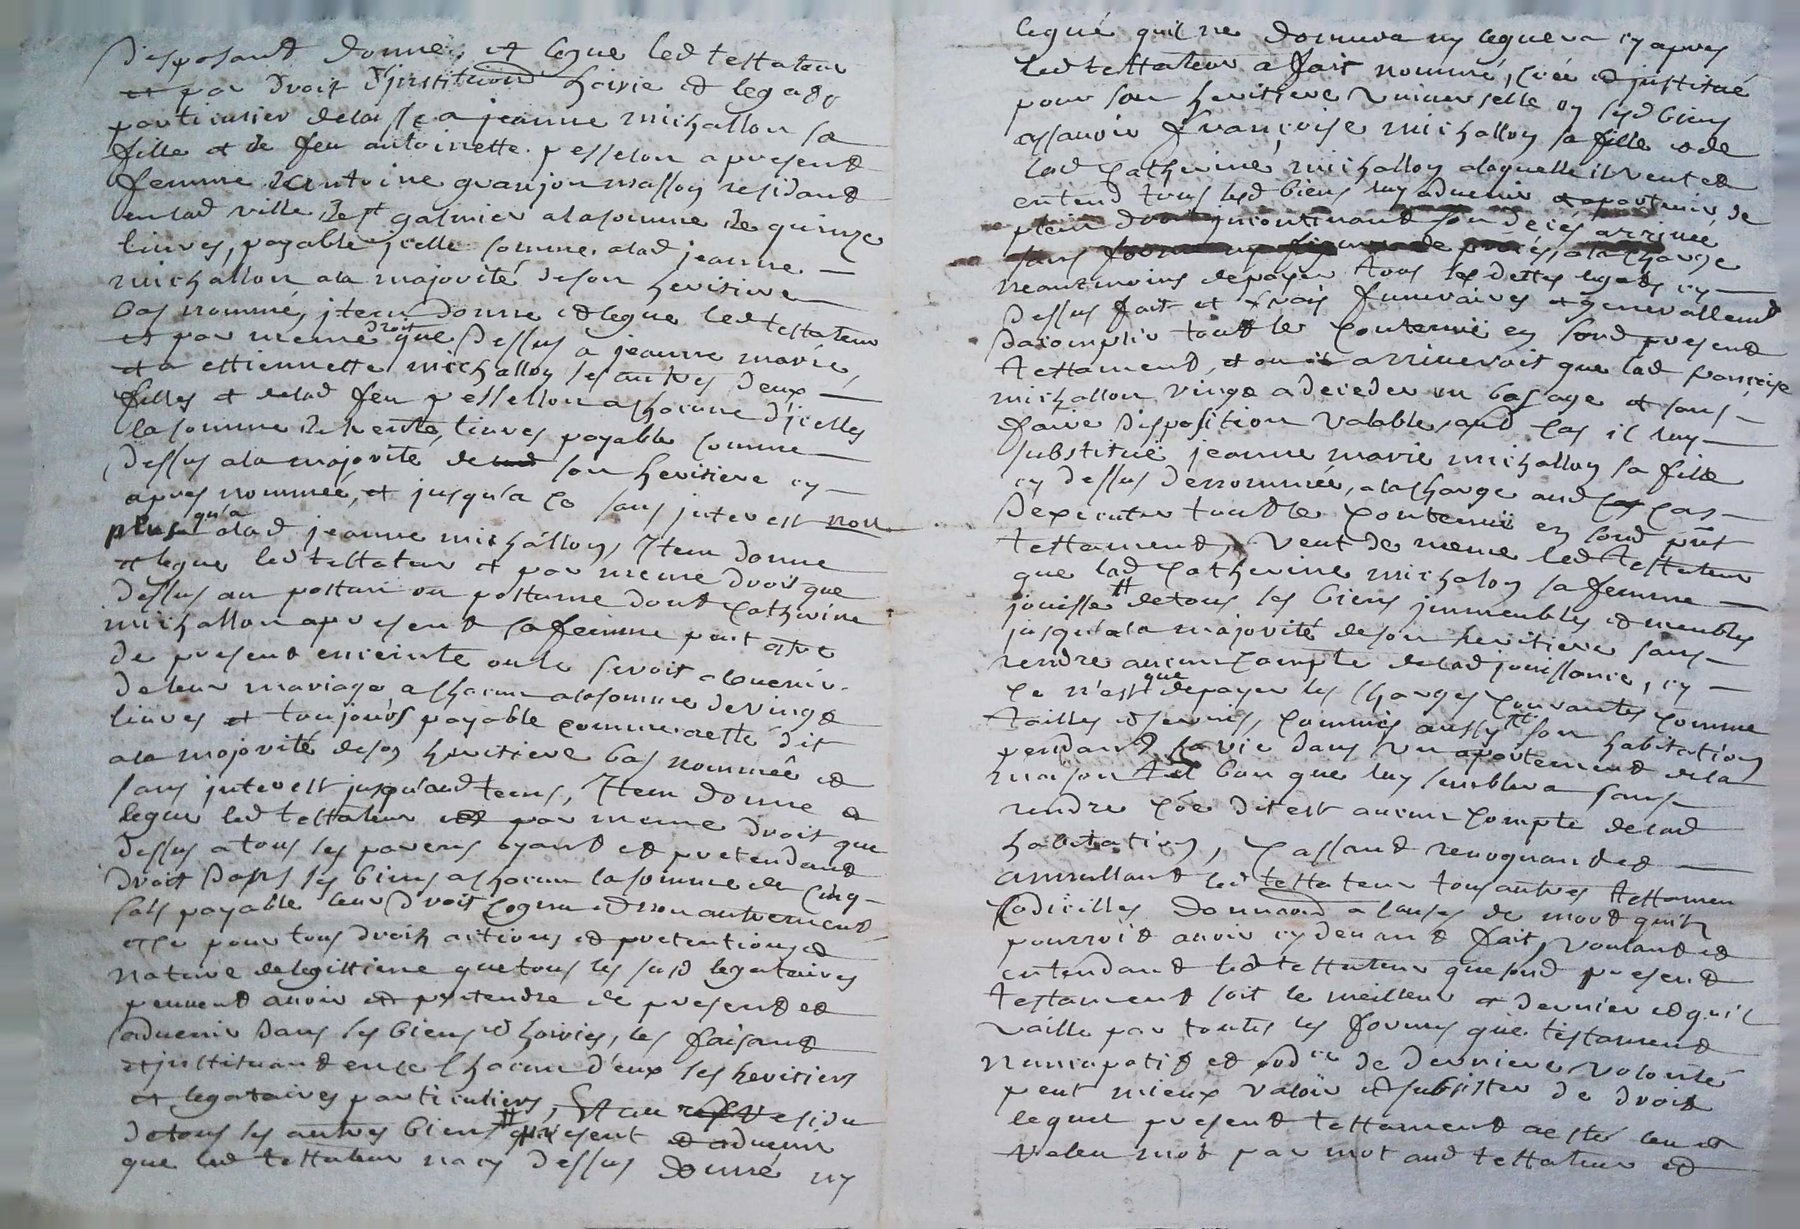 Disposant donne et legue led testateur
et par droit d'jnstitution hoirie et legado
particulier delaisse a jeanne michallon sa
fille et de feu antoinette pesselon apresent
femme dantoine granjon masson residant
enlad ville de st galmier alasomme de quinze
livres, payable jcelle somme alad jeanne
michallon ala majorité deson heritiere
bas nommé, jtem donne et legue led testateur
et par meme droit que dessus a jeanne marie,
et a ettiennette michallon ses autres deux
filles et delad feu pessellon a chacune d'jcelles
la somme de trente livres payable comme
dessus ala majorité de son heritiere cy
apres nommeé, et jusqu'a ce sans jnterest non
plus qu'a alad jeanne michallon, Jtem donne
et legue led testateur et par meme droit que
dessus au postum ou postume dont Catherine
michallon apresent sa femme peut estre
de present enceinte ou le seroit alavenir
de leur mariage a chacun alasomme de vingt
livres et toujours payable comme cette dit
ala majorité deson heritiere bas nommeé et
sans jnterest jusqu'aud tems, Jtem donne et
legue led testateur et par meme droit que
dessus a tous ses parens ayant et pretendant
droit dans ses biens a chacun la somme de cinq
sols payable leur droit cognu et non autrement
et ce pour tous droits actions et pretentions et
nature delegittime que tous les susd legataires
peuvent avoir et pretendre de present et
aduenir dans ses biens et hoiries, les faisant
et jnstituant en ce chacun d'eux ses heritiers
et legataires particuliers, Et au residu
detous ses autres biens present et aduenir
que led testateur na cy dessus donné ny
legué quil ne donnera ny leguera cy apres
led testateur a fait nommé, creé et jnstitué
pour son heritiere universelle en sesd biens
assavoir françoise michallon sa fille et de
lad Catherine michallon alaquelle il veut et
entend tous sesd biens luy aduenir et apartenir de
plein droit jncontinant son deces arrivée
sans forme ny figure de procés, ala charge
neanmoins depayer tous ses dettes legats cy
dessus fait et frais funeraires et generallement
dacomplir tout le contenüe en sond present
testament, et ou il arriveroit que lad francoise
michallon vinge a deceder en bas age et sans
faire disposition valable, aud cas il luy
substitue jeanne marie michallon sa fille
cy dessus denommée, ala charge aud cas
dexecuter tout le contenüe en sond pnt
testament, veut de meme led testateur
que lad Catherine michalon sa femme
jouisse detous ses biens jmmeubles et meubles
jusqu'ala majorité deson heritiere sans
rendre aucun compte delad jouissance, cy
ce n'est que depayer les charges courantes comme
tailles et servis, comme aussy son habitation
pendant sa vie dans un apartement de la
maison tel bon que luy semblera sans
rendre côe dit est aucun compte delad
habitation, Cassant revoquant et
annullant led testateur tous autres testamen
Codicilles donnaond a causes de mort quil
pourroit avoir cy devant fait, voulant et
entendant led testateur que sond present
testament soit le meilleur et dernier et qu'il
vaille par toutes les formes que testament
nuncupatif et ord.re de derniere volonté
peut mieux valoir et subsister de droit
lequel present testament aesté leu et
releu mot par mot aud testateur et